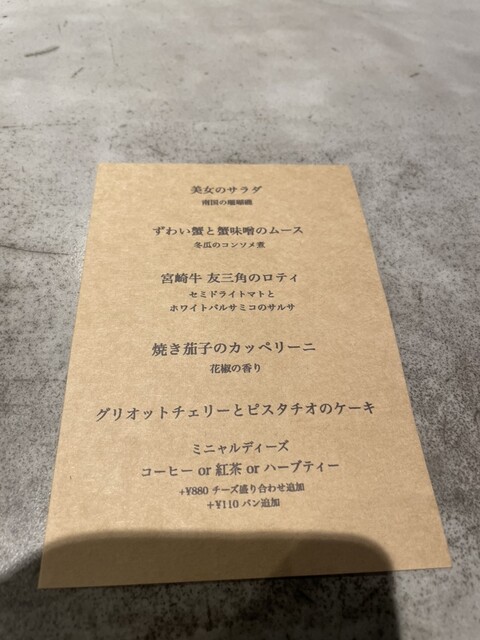 美女のサラダ
南国の珊瑚礁
ずわい蟹と蟹味噌のムース
冬瓜のコンソメ煮
宮崎牛 友三角のロティ
セミドライトマトと
ホワイトバルサミコのサルサ
焼き茄子のカッペリーニ
花椒の香り
グリオットチェリーとピスタチオのケーキ
ミニャルディーズ
コーヒー or 紅茶 or ハーブティー
+¥880 チーズ盛り合わせ追加
+¥110 パン追加